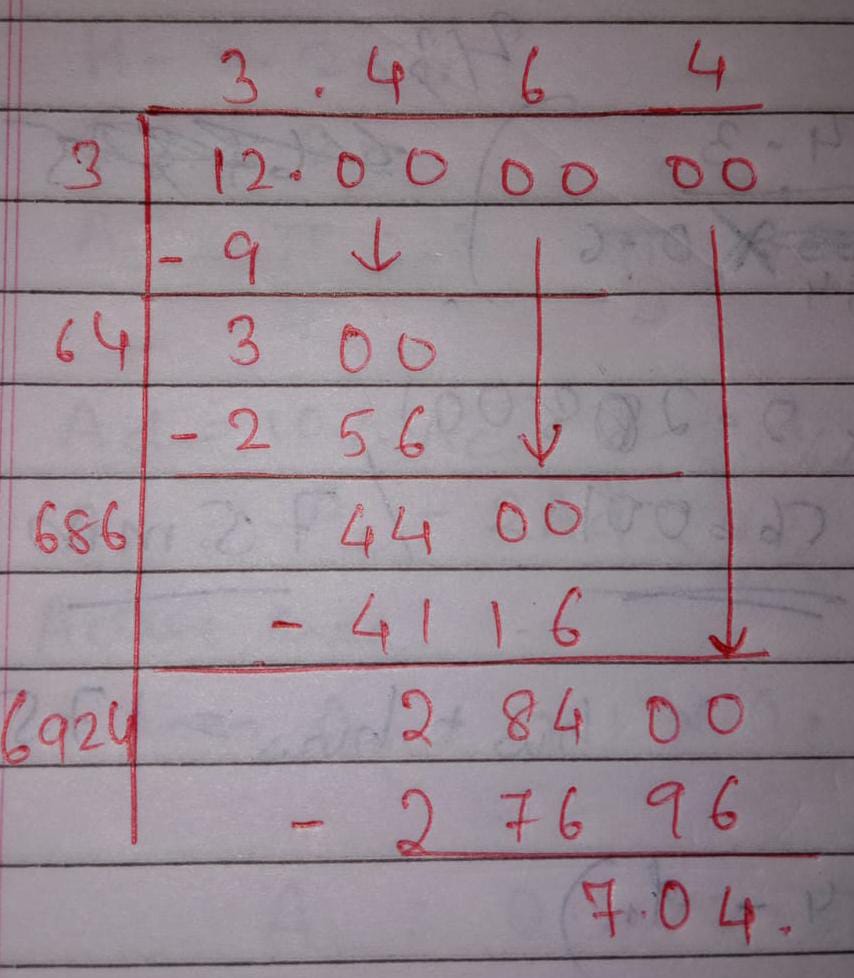 3 . 4 6 4
3 12.00 00 00
- 9 ↓
64 3 00
- 2 56
686 44 00
- 41 16
6924 2 84 00
- 2 76 96
7.04.